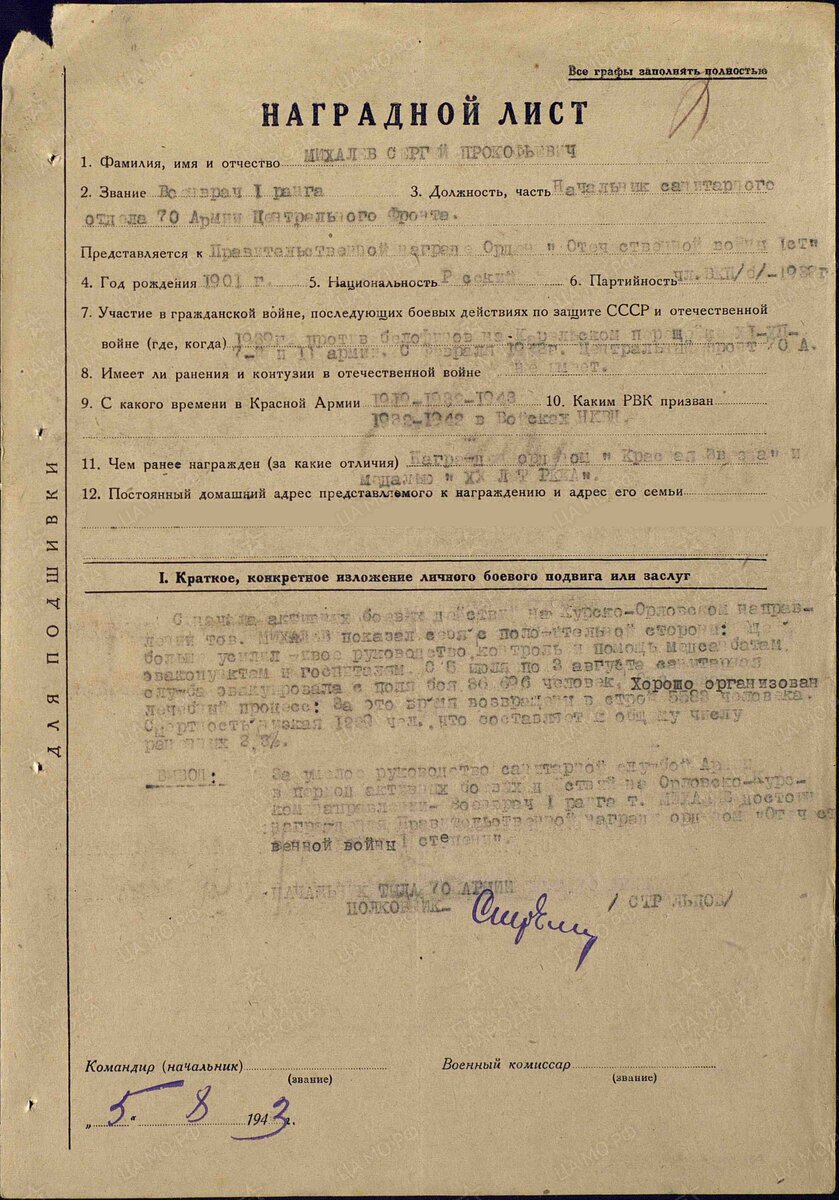 Все графы заполнять полностью
НАГРАДНОЙ ЛИСТ
1. Фамилия, имя и отчество МИХАЛЕВ СЕРГЕЙ ПРОКОФЬЕВИЧ
2. Звание Военврач I ранга 3. Должность, часть Начальник санитарного
отдела 70 Армии Центрального Фронта.
Представляется к Правительственной награде Орден " Отечественной войны 1ст"
4. Год рождения 1901 г. 5. Национальность Русский 6. Партийность чл.ВКП/б/-1932г
7. Участие в гражданской войне, последующих боевых действиях по защите СССР и отечественной
войне (где, когда) 1939г против белофинов на Карельском
и 11 армии. С февраля Центральный фронт 70 А.
8. Имеет ли ранения и контузии в отечественной войне не имеет.
9. С какого времени в Красной Армии 1919-1932-1943 10. Каким РВК призван
1932-1942 в Войсках НКВД.
11. Чем ранее награжден (за какие отличия) Награжден орденом " Красная Звезда" и
медалью " ХХ ЛЕТ РККА".
12. Постоянный домашний адрес представляемого к награждению и адрес его семьи
I. Краткое, конкретное изложение личного боевого подвига или заслуг
С начала активных боевых действий на Курско-Орловском направ-
лении тов. МИХАЛЕВ показал себя с положительной стороны: Еще
больше усилил свое руководство, контроль и помощь медсанбатам,
эвакопунктам и госпиталям. С 5 июля по 3 августа санитарная
служба эвакуировала с поля боя человек. Хорошо организован
лечебный процесс: За это время возвращено в строй человека.
Смертность низкая чел. что составляет к общему числу
раненных
ВЫВОД: За умелое руководство санитарной службой Армии
в период активных боевых действий на Орловско-Курс-
ком направлении- Военврач I ранга т. МИХАЛЕВ достоин
награждения Правительственной награды орденом "Отечест
венной войны I степени".
НАЧАЛЬНИК ТЫЛА 70 АРМИИ
ПОЛКОВНИК- /СТРЕЛЬЦОВ/
Командир (начальник) Военный комиссар
(звание) (звание)
„5" 8 1943г.
ДЛЯ ПОДШИВКИ